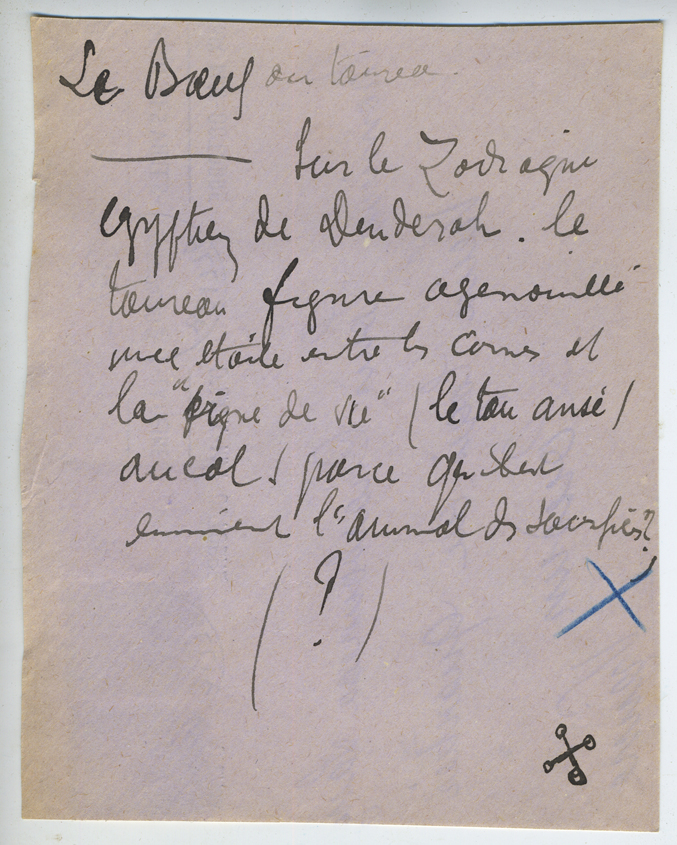 Le Bœuf ou taureau
Sur le Zodiaque
égyptien de Denderah. le
taureau figure agenouillé
une étoile entre les cornes et
la "signe de vie" (le tau ansé)
au col, parce qu'il est
l'"animal des sacrifices"?
(?)